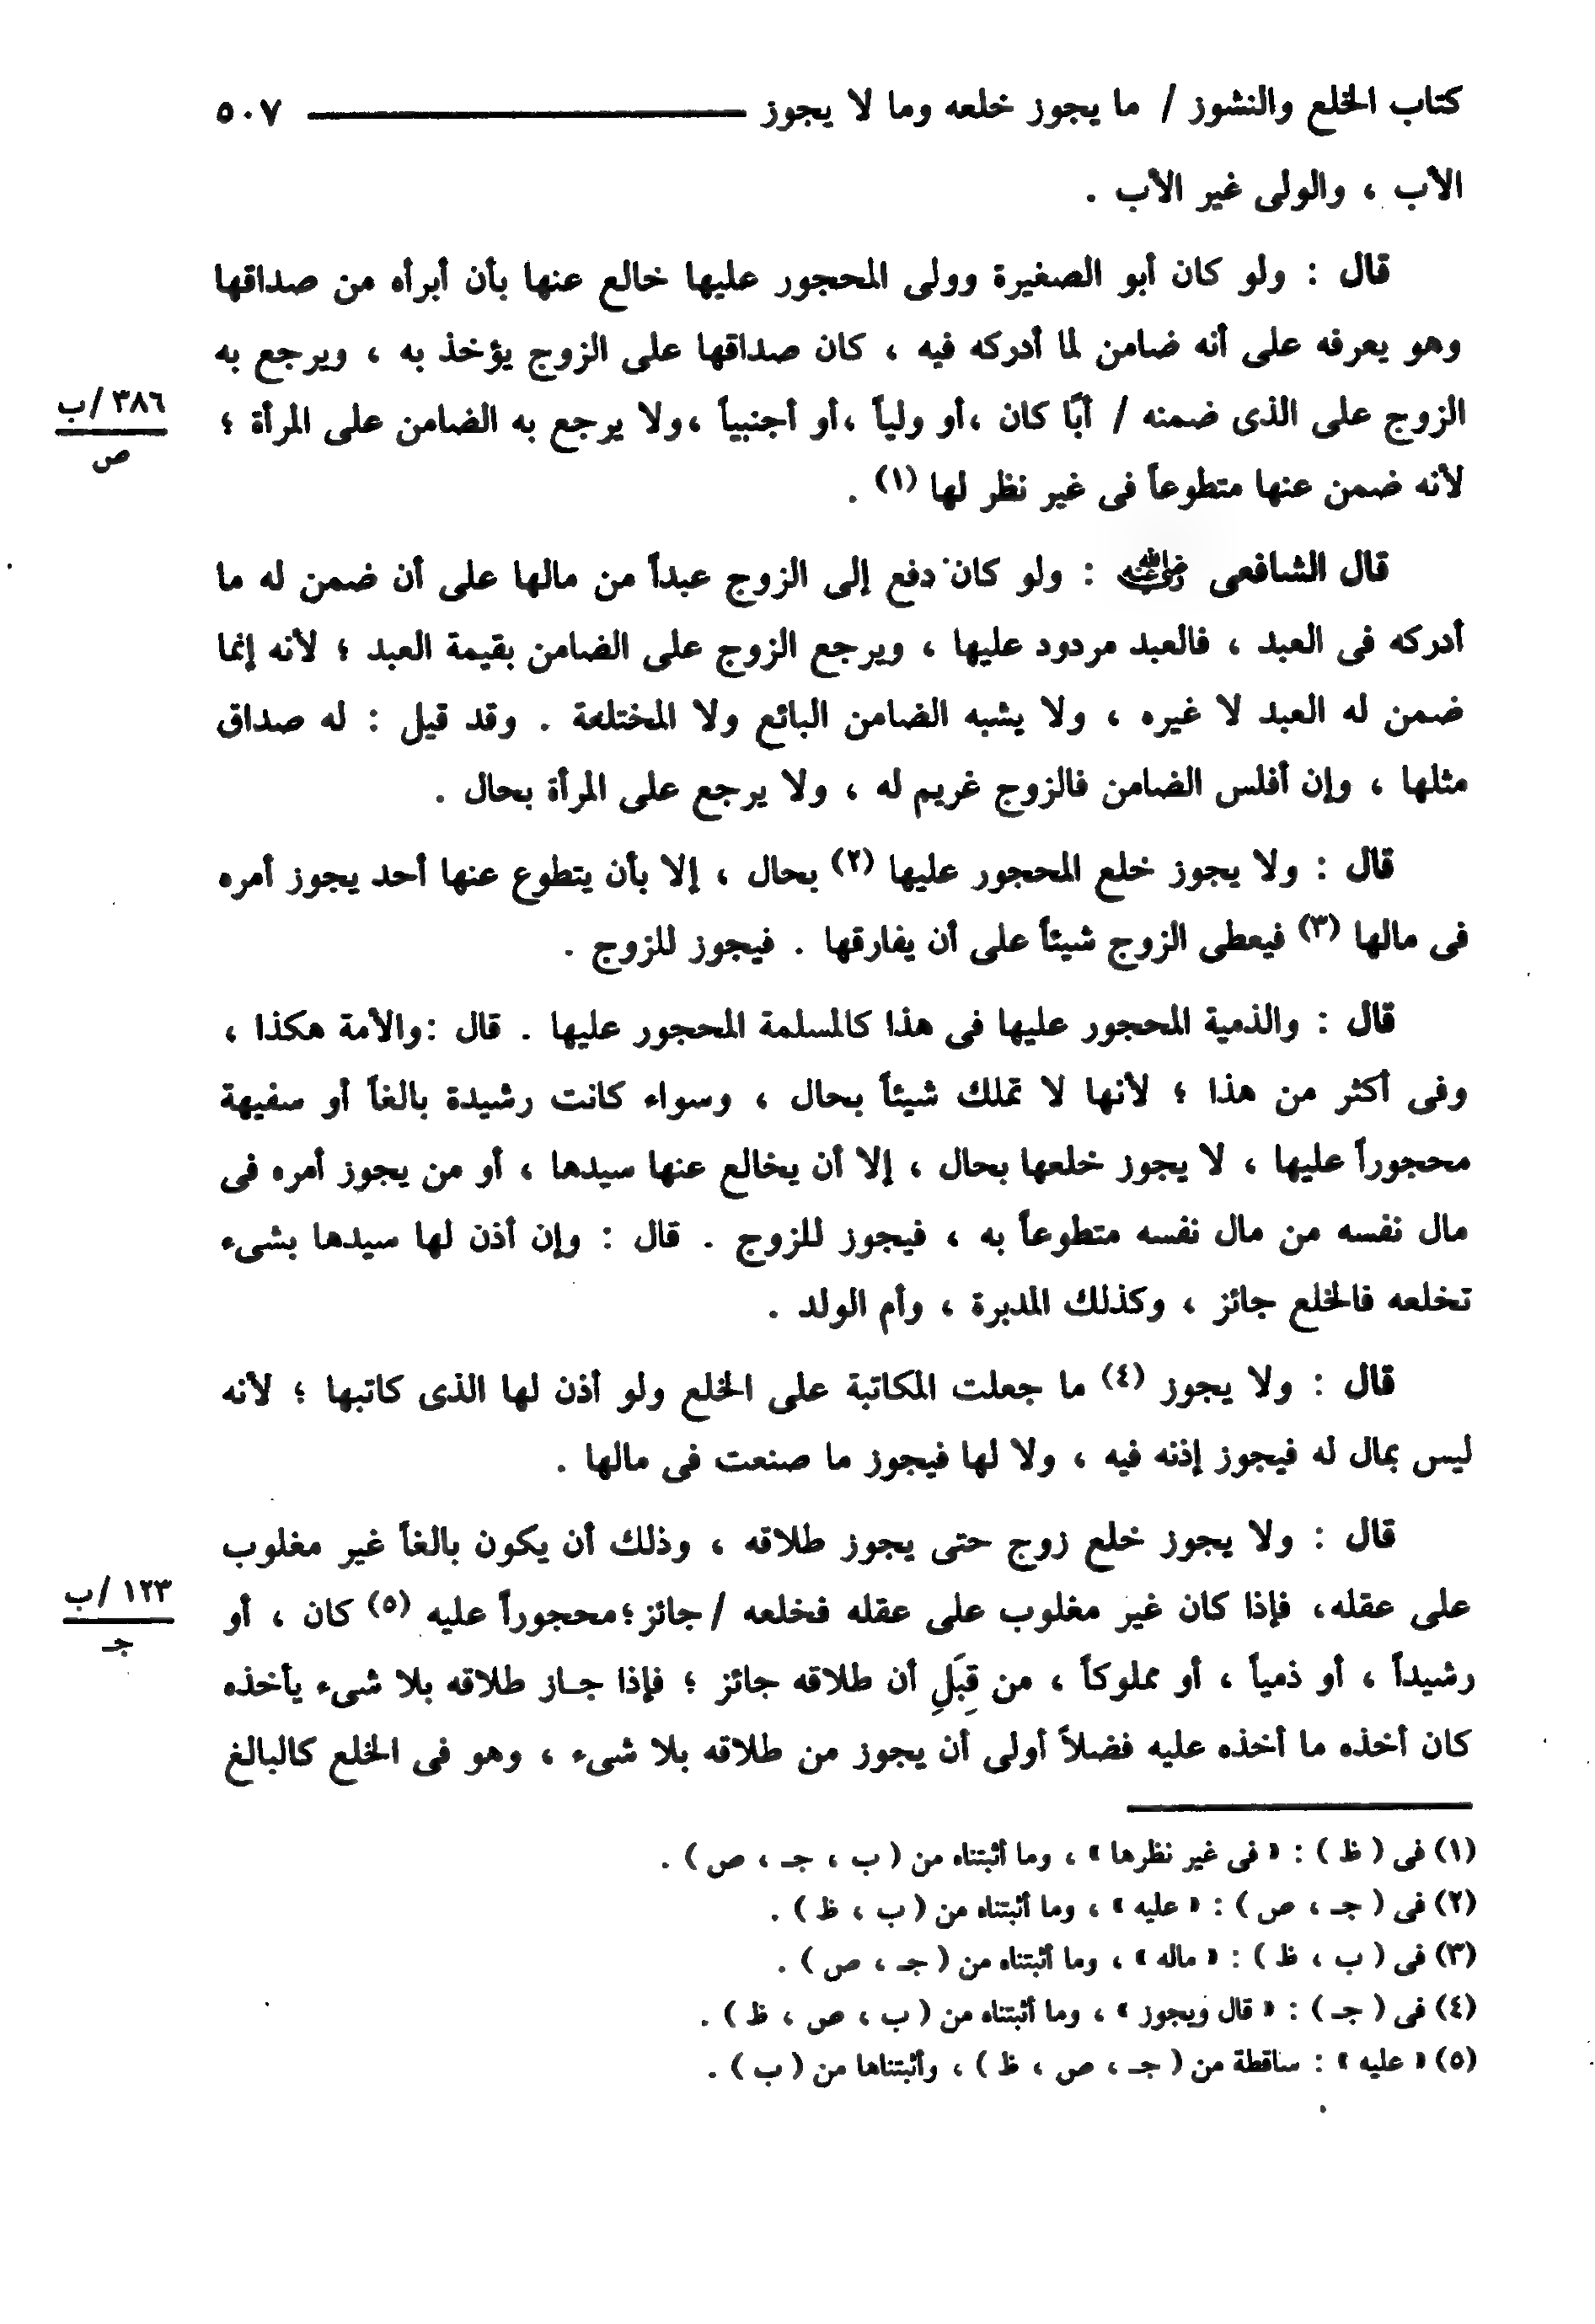 كتاب الخلع والنشوز / ما يجوز خلعه وما لا يجوز ــــــــــــ ٥٠٧
الأب ، والولى غير الأب .
قال : ولو كان أبو الصغيرة وولى المحجور عليها خالع عنها بأن أبرأه من صداقها
وهو يعرفه على أنه ضامن لما أدركه فيه ، كان صداقها على الزوج يؤخذ به ، ويرجع به
الزوج على الذى ضمنه / أبًا كان ،أو ولياً ،أو أجنبياً ،ولا يرجع به الضامن على المرأة ؛
٣٨٦ /ب
ص
لأنه ضمن عنها متطوعاً فى غير نظر لها (١) .
قال الشافعى رضي الله عنه : ولو كان دفع إلى الزوج عبداً من مالها على أن ضمن له ما
أدركه فى العبد ، فالعبد مردود عليها ، ويرجع الزوج على الضامن بقيمة العبد ؛ لأنه إنما
ضمن له العبد لا غيره ، ولا يشبه الضامن البائع ولا المختلعة . وقد قيل : له صداق
مثلها ، وإن أفلس الضامن فالزوج غريم له ، ولا يرجع على المرأة بحال .
قال : ولا يجوز خلع المحجور عليها (٢) بحال ، إلا بأن يتطوع عنها أحد يجوز أمره
فى مالها (٣) فيعطى الزوج شيئاً على أن يفارقها . فيجوز للزوج .
قال : والذمية المحجور عليها فى هذا كالمسلمة المحجور عليها . قال :والأمة هكذا ،
وفى أكثر من هذا ؛ لأنها لا تملك شيئاً بحال ، وسواء كانت رشيدة بالغاً أو سفيهة
محجوراً عليها ، لا يجوز خلعها بحال ، إلا أن يخالع عنها سيدها ، أو من يجوز أمره فى
مال نفسه من مال نفسه متطوعاً به ، فيجوز للزوج . قال : وإن أذن لها سيدها بشىء
تخلعه فالخلع جائز ، وكذلك المدبرة ، وأم الولد .
قال : ولا يجوز (٤) ما جعلت المكاتبة على الخلع ولو أذن لها الذى كاتبها ؛ لأنه
ليس بمال له فيجوز إذنه فيه ، ولا لها فيجوز ما صنعت فى مالها .
قال : ولا يجوز خلع زوج حتى يجوز طلاقه ، وذلك أن يكون بالغاً غير مغلوب
على عقله، فإذا كان غير مغلوب على عقله فخلعه / جائز؛محجوراً عليه (٥) كان ، أو
١٢٣ /ب
جـ
رشيداً ، أو ذمياً ، أو مملوكاً ، من قِبَلِ أن طلاقه جائز ؛ فإذا جـاز طلاقه بلا شىء يأخذه
كان أخذه ما أخذه عليه فضلاً أولى أن يجوز من طلاقه بلا شىء ، وهو فى الخلع كالبالغ
(١) فى ( ظ ) : « فى غير نظرها » ، وما أثبتناه من ( ب ، جـ ، ص ) .
(٢) فى ( جـ ، ص ) : « عليه » ، وما أثبتناه من ( ب ، ظ ) .
(٣) فى ( ب ، ظ ) : « ماله » ، وما أثبتناه من ( جـ ، ص ) .
(٤) فى ( جـ ) : « قال ويجوز » ، وما أثبتناه من ( ب ، ص ، ظ ) .
(٥) « عليه » : ساقطة من ( جـ ، ص ، ظ ) ، وأثبتناها من ( ب ) .